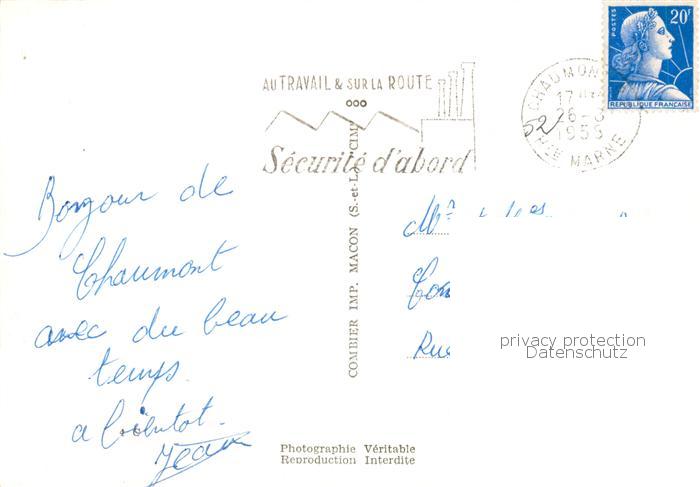 POSTES
20F
REPUBLIQUE FRANÇAISE
AU TRAVAIL & SUR LA ROUTE
Sécurité d'abord
CHAUMONT
17H
26
1959
Hte MARNE
52
Bonjour de
Chaumont
avec du beau
temps.
a bientot.
Jean
COMBIER IMP. MACON (S.-et-L.) "CIM"
Rue
privacy protection
Datenschutz
Photographie Véritable
Reproduction Interdite